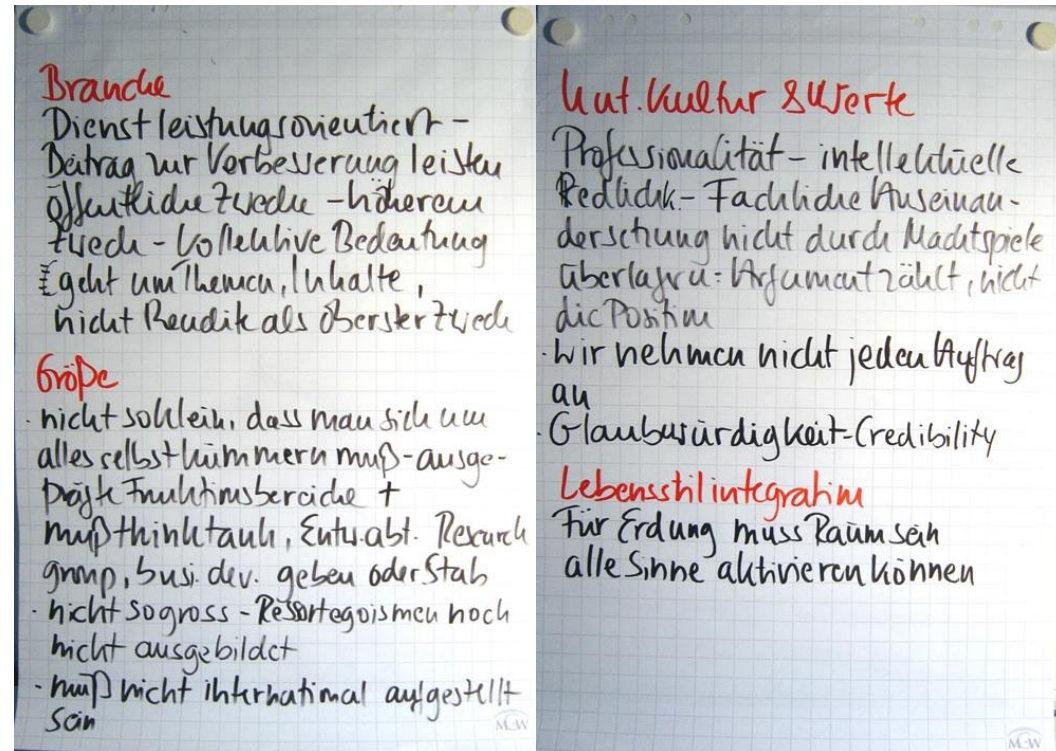 Branche
Dienstleistungsorientiert -
Beitrag zur Verbesserung leisten
öffentliche Zwecke - höherem
Zweck - kollektive Bedeutung
Es geht um Themen, Inhalte,
nicht Rendite als oberster Zweck
Größe
· nicht so klein, dass man sich um
alles selbst kümmern muß - ausge-
prägte Funktionsbereiche +
muß thinktank, Entw.abt. Research
group, busi. dev. geben oder Stab
· nicht so gross - Ressortegoismen noch
nicht ausgebildet
· muß nicht international aufgestellt
sein
MGW
Unt. Kultur & Werte
Professionalität - intellektuelle
Redlichk. - Fachliche Auseinan-
dersetzung nicht durch Machtspiele
überlagern: Argument zählt, nicht
die Position
· Wir nehmen nicht jeden Auftrag
an
· Glaubwürdigkeit - Credibility
Lebensstilintegration
Für Erdung muss Raum sein
alle Sinne aktivieren können
MGW